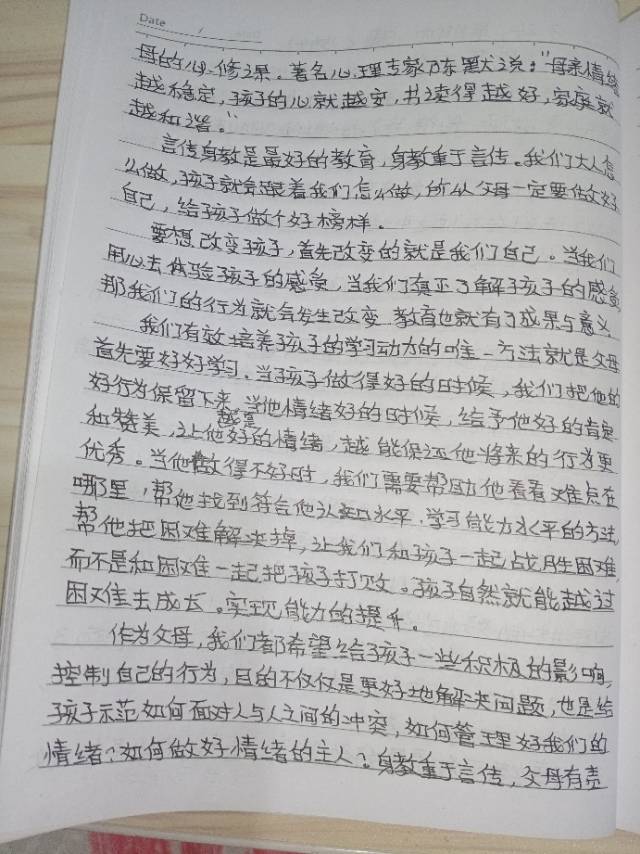 Date /
母的心修课。著名心理专家万东默说:“母亲情绪
越稳定,孩子的心就越安,书读得越好,家庭就
越和谐。”
言传身教是最好的教育,身教重于言传。我们大人怎
么做,孩子就会跟着我们怎么做,所以父母一定要做好
自己,给孩子做个好榜样。
要想改变孩子,首先改变的就是我们自己。当我们
用心去体验孩子的感觉,当我们真正了解孩子的感觉
那我们的行为就会发生改变 教育也就有了成果与意义
我们有效培养孩子的学习动力的唯一方法就是父母
首先要好好学习。当孩子做得好的时候,我们把他的
好行为保留下来 当他情绪好的时候,给予他好的肯定
和赞美,让他越是好的情绪,越能保证他将来的行为更
优秀。当他做得不好时,我们需要帮助他看看难点在
哪里,帮他找到符合他认知水平,学习能力水平的方法,
帮他把困难解决掉,让我们和孩子一起战胜困难,
而不是和困难一起把孩子打败。孩子自然就能越过
困难去成长。实现能力的提升。
作为父母,我们都希望给孩子一些积极的影响,
控制自己的行为,目的不仅仅是更好地解决问题,也是给
孩子示范如何面对人与人之间的冲突,如何管理好我们的
情绪?如何做好情绪的主人?身教重于言传,父母有责